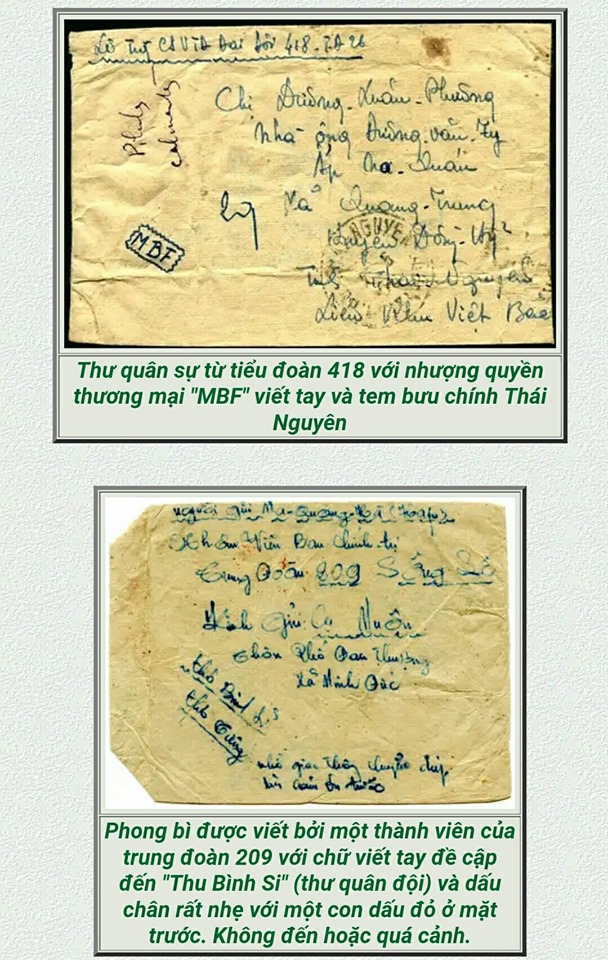 Đại đội 418
Chị Dương Xuân Phương
nhà ông Dương văn Ty
Ấp Na Quán
Xã Quang Trung
Huyện Đồng Hỷ
Tỉnh Thái Nguyên
Liên Khu Việt Bắc
MBF
NGUYE
Thư quân sự từ tiểu đoàn 418 với nhượng quyền
thương mại "MBF" viết tay và tem bưu chính Thái
Nguyên
người gửi Ma-Quang
Nhân Viên Ban Chính trị
Trung Đoàn 209 Sông Lô
Kính gửi Cụ Muôn
thôn Phố Đan Thượng
Xã Minh Đức
thơ Binh Sĩ
nhờ giao thông chuyển
Phong bì được viết bởi một thành viên của
trung đoàn 209 với chữ viết tay đề cập
đến "Thu Bình Si" (thư quân đội) và dấu
chân rất nhẹ với một con dấu đỏ ở mặt
trước. Không đến hoặc quá cảnh.